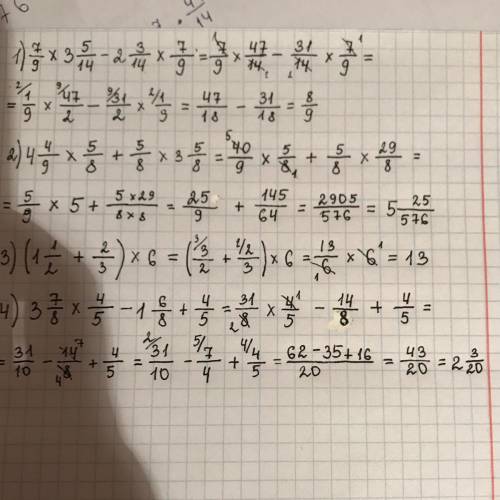 76 7 · 4/14
1) 7/9 × 3 5/14 - 2 3/14 × 7/9 = 7/9 × 47/14 - 31/14 × 7/9 =
= 1/9 × 47/2 - 31/2 × 1/9 = 47/18 - 31/18 = 8/9
2) 4 4/9 × 5/8 + 5/8 × 3 5/8 = 40/9 × 5/8 + 5/8 × 29/8 =
= 5/9 × 5 + 5×29/8×8 = 25/9 + 145/64 = 2905/576 = 5 25/576
3) (1 1/2 + 2/3) × 6 = (3/2 + 2/3) × 6 = 13/6 × 6 = 13
4) 3 7/8 × 4/5 - 1 6/8 + 4/5 = 31/8 × 4/5 - 14/8 + 4/5 =
= 31/10 - 14/8 + 4/5 = 31/10 - 7/4 + 4/5 = 62-35+16/20 = 43/20 = 2 3/20